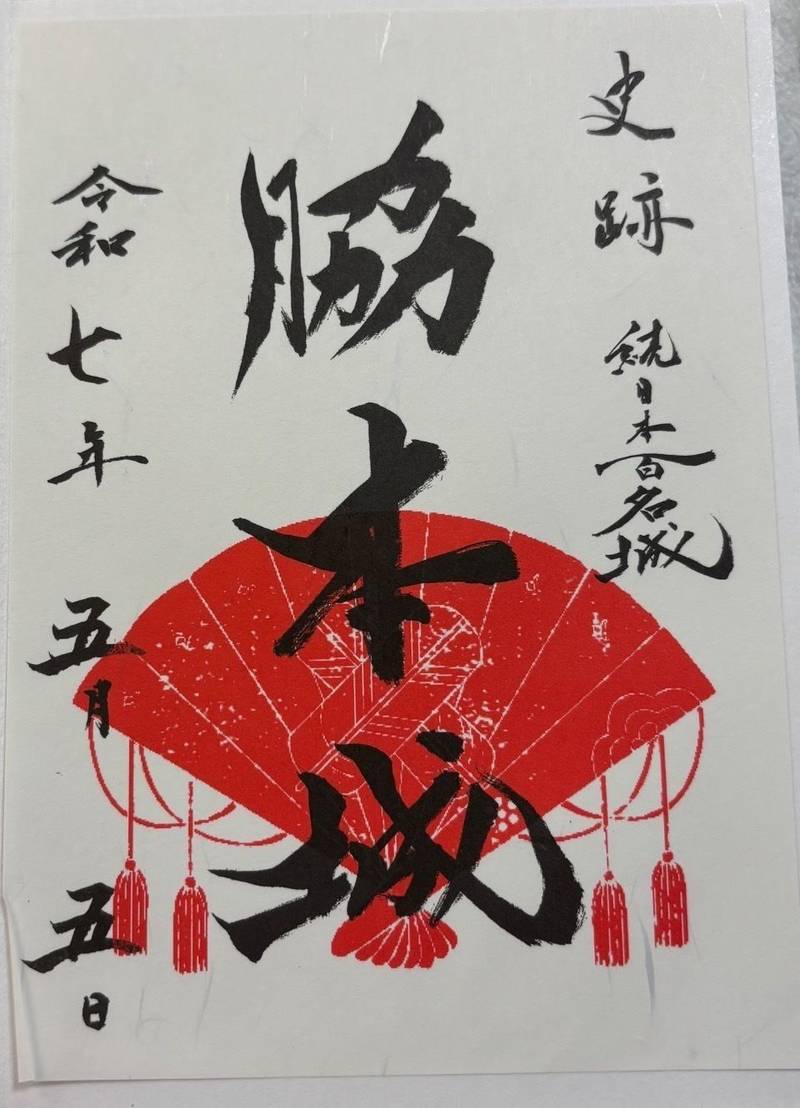 史跡 続日本百名城
脇本城
令和七年 五月 五日